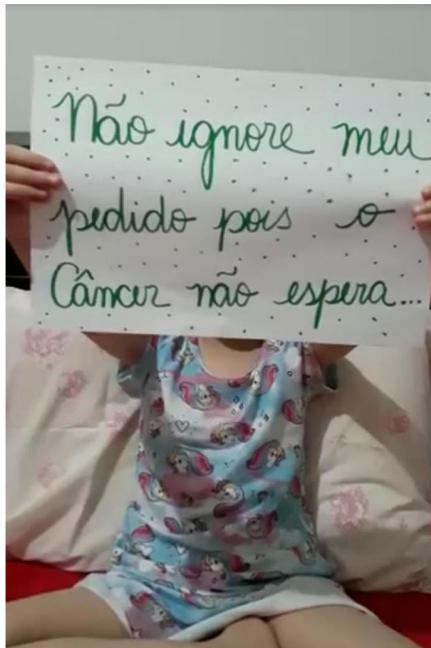 Não ignore meu
pedido pois o
Câncer não espera...